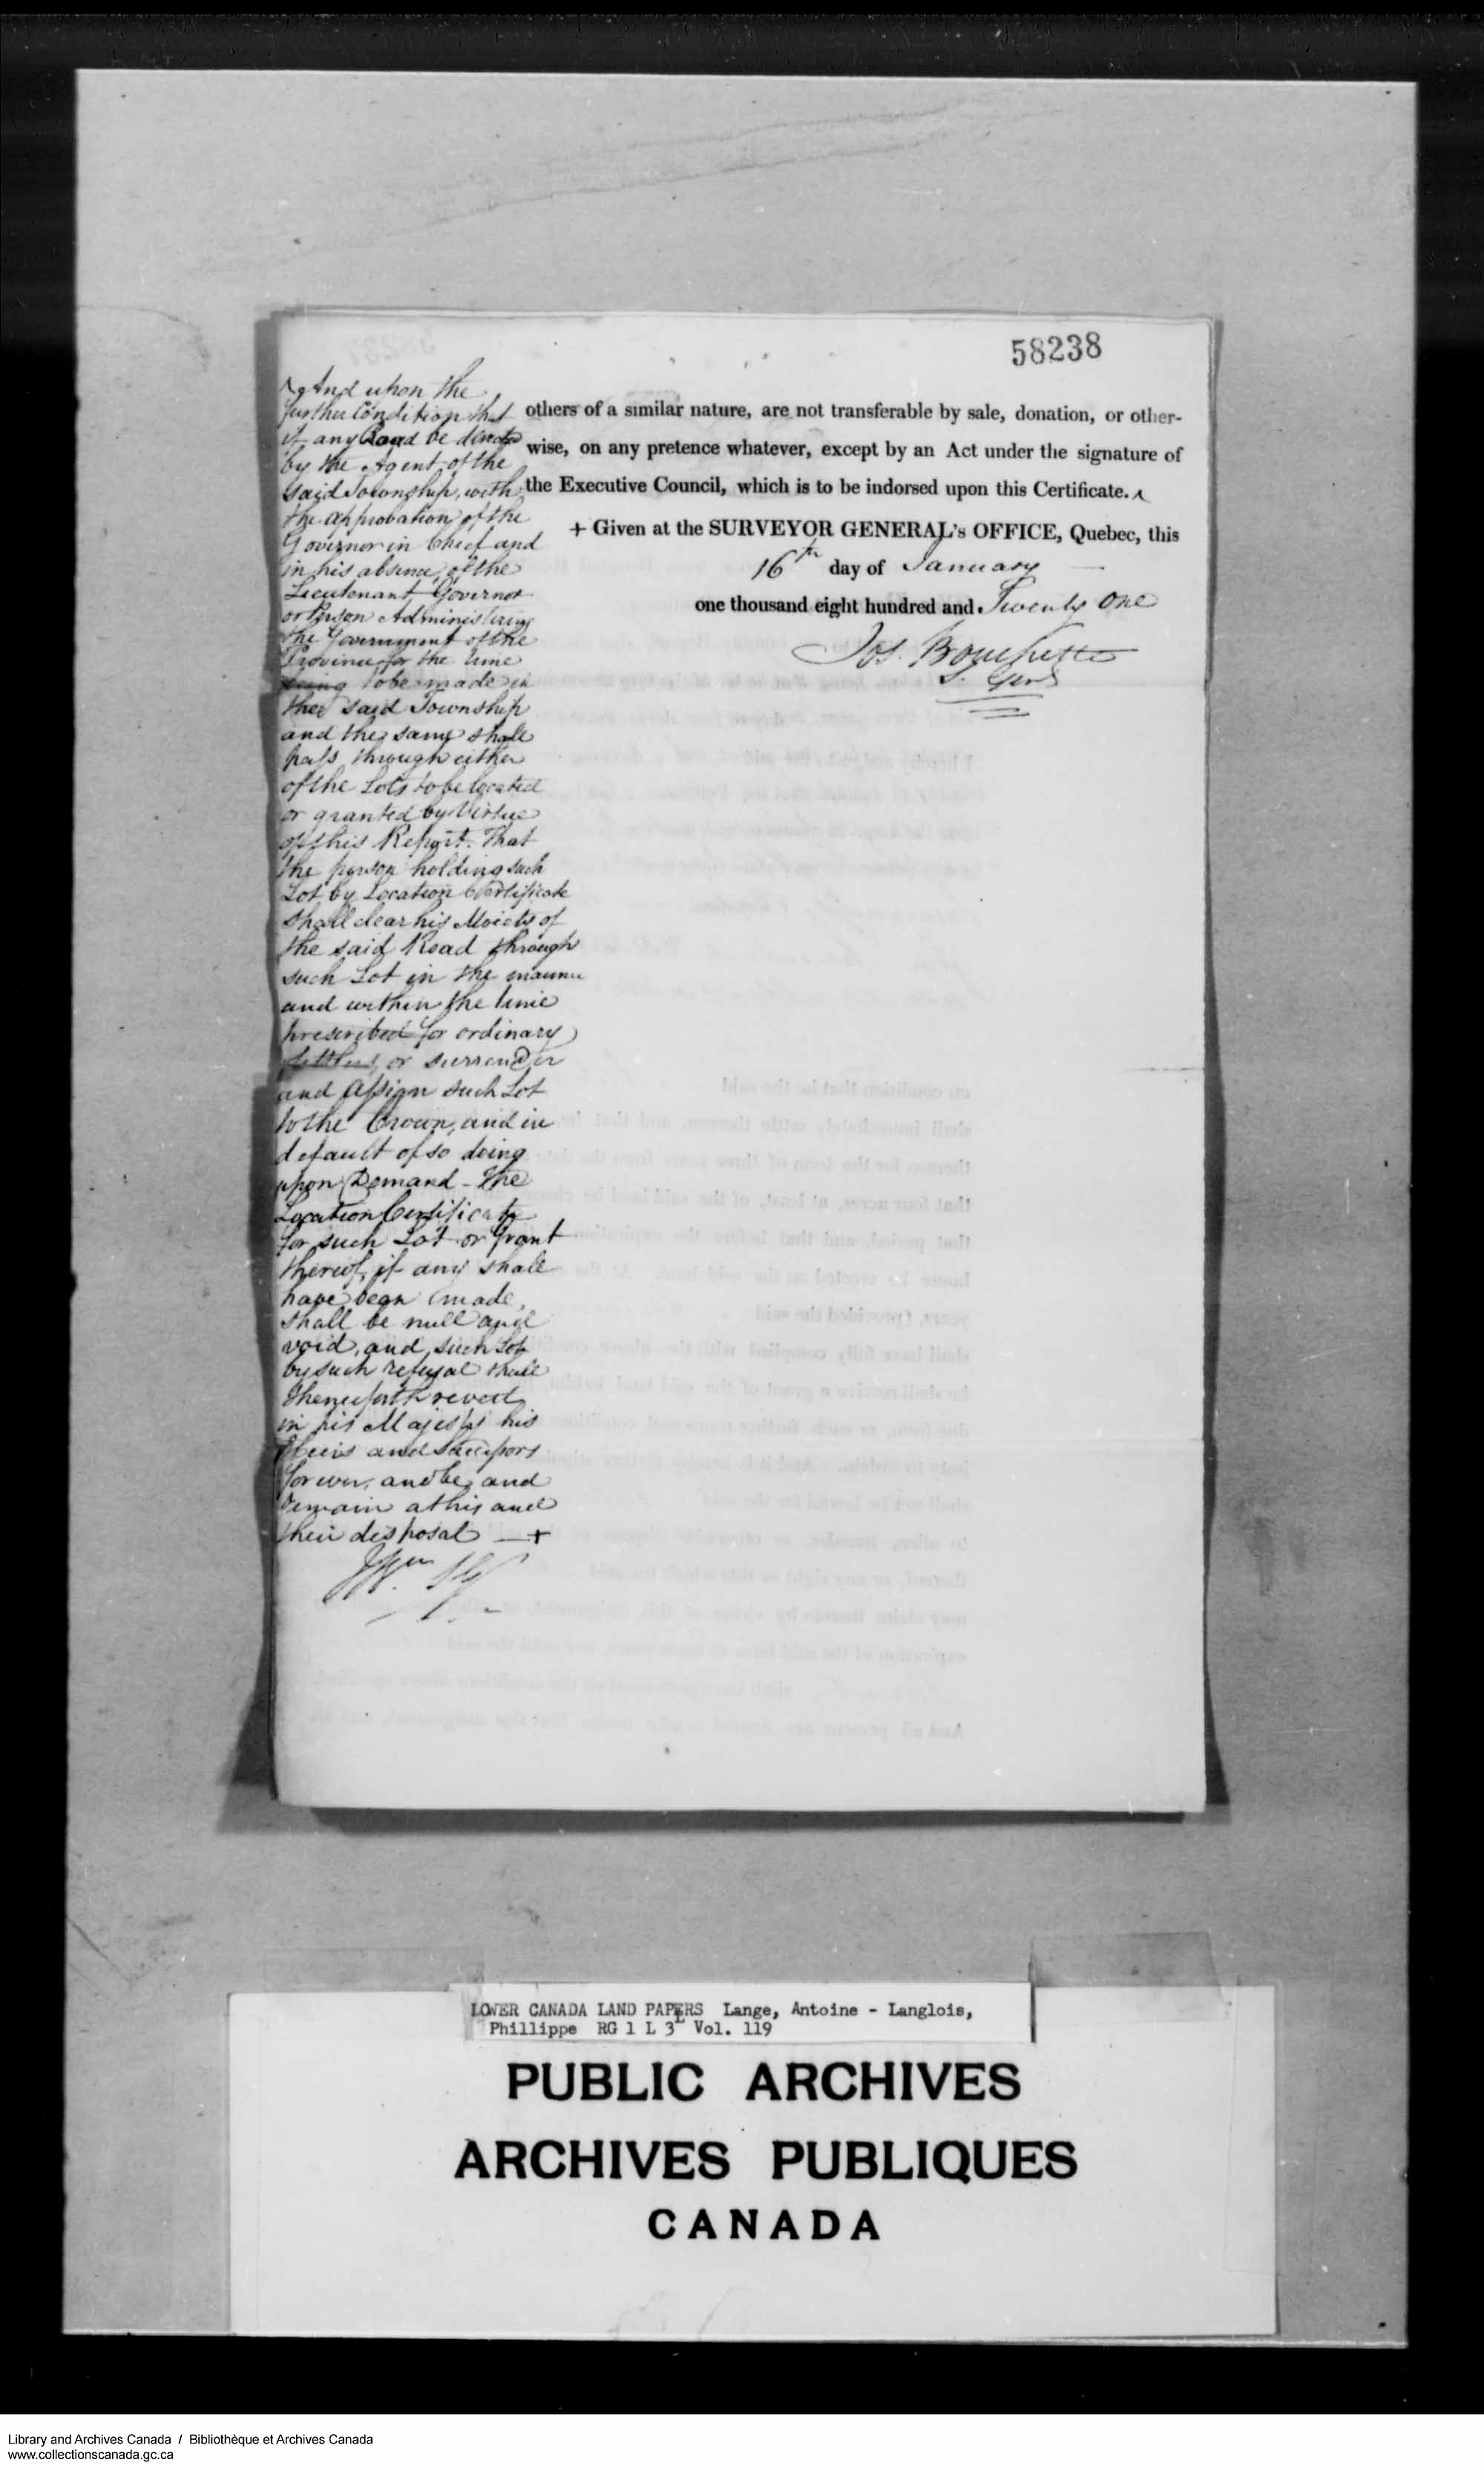 58238
others of a similar nature, are not transferable by sale, donation, or other-
wise, on any pretence whatever, except by an Act under the signature of
the Executive Council, which is to be indorsed upon this Certificate. ^
+ Given at the SURVEYOR GENERAL's OFFICE, Quebec, this
16th day of January
one thousand eight hundred and Twenty One
Jos. Bouchette
S. Genl
And upon the
further Condition that
if any Road be directed
by the Agent of the
said Township, with
the approbation of the
Governor in Chief and
in his absence of the
Lieutenant Governor
or Person Administering
the Government of the
Province for the time
being to be made in
the said Township
and the same shall
pass through either
of the Lots to be located
or granted by Virtue
of this Report. That
the person holding such
Lot by Location Certificate
shall clear his Moiety of
the said Road through
such Lot in the manner
and within the time
prescribed for ordinary
settlers, or surrender
and Assign such Lot
to the Crown, and in
default of so doing
upon Demand - The
Location Certificate
for such Lot or Grant
thereof, if any shall
have been made,
shall be null and
void, and such Lot
by such refusal shall
thenceforth revert
in his Majesty his
Heirs and Successors
forever, and be and
remain at his and
their disposal —+
LOWER CANADA LAND PAPERS Lange, Antoine - Langlois,
Phillippe RG 1 L 3L Vol. 119
PUBLIC ARCHIVES
ARCHIVES PUBLIQUES
CANADA
Library and Archives Canada / Bibliothèque et Archives Canada
www.collectionscanada.gc.ca